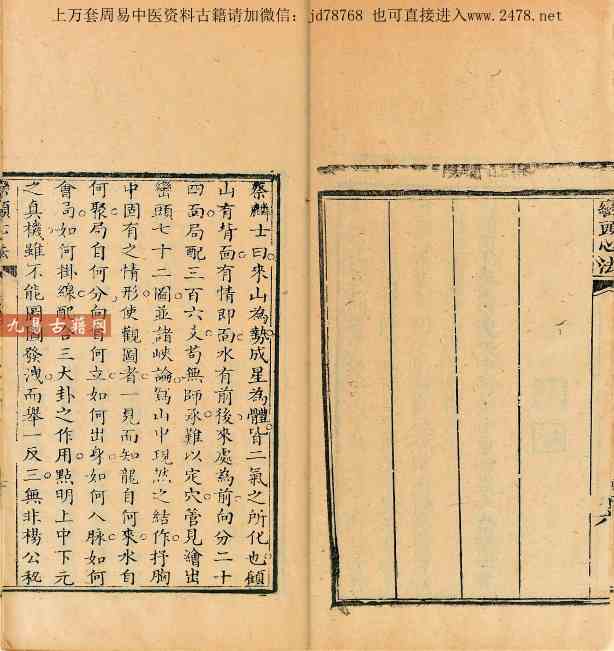 上万套周易中医资料古籍请加微信：jd78768 也可直接进入www.2478.net
巒頭心法
蔡麟士曰來山為勢成星為體皆二氣之所化也顧
山有背面有情即面水有前後來處為前向分二十
四面局配三百六爻苟無師承難以定穴管見繪出
巒頭七十二圖並諸峽論寫山中現然之結作抒胸
中固有之情形使觀圖者一見而知龍自何來水自
何聚局自何分向自何立如何出身如何入脉如何
會局如何掛線配合三大卦之作用點明上中下元
之真機雖不能圖圖發洩而舉一反三無非楊公秘
九易古籍网